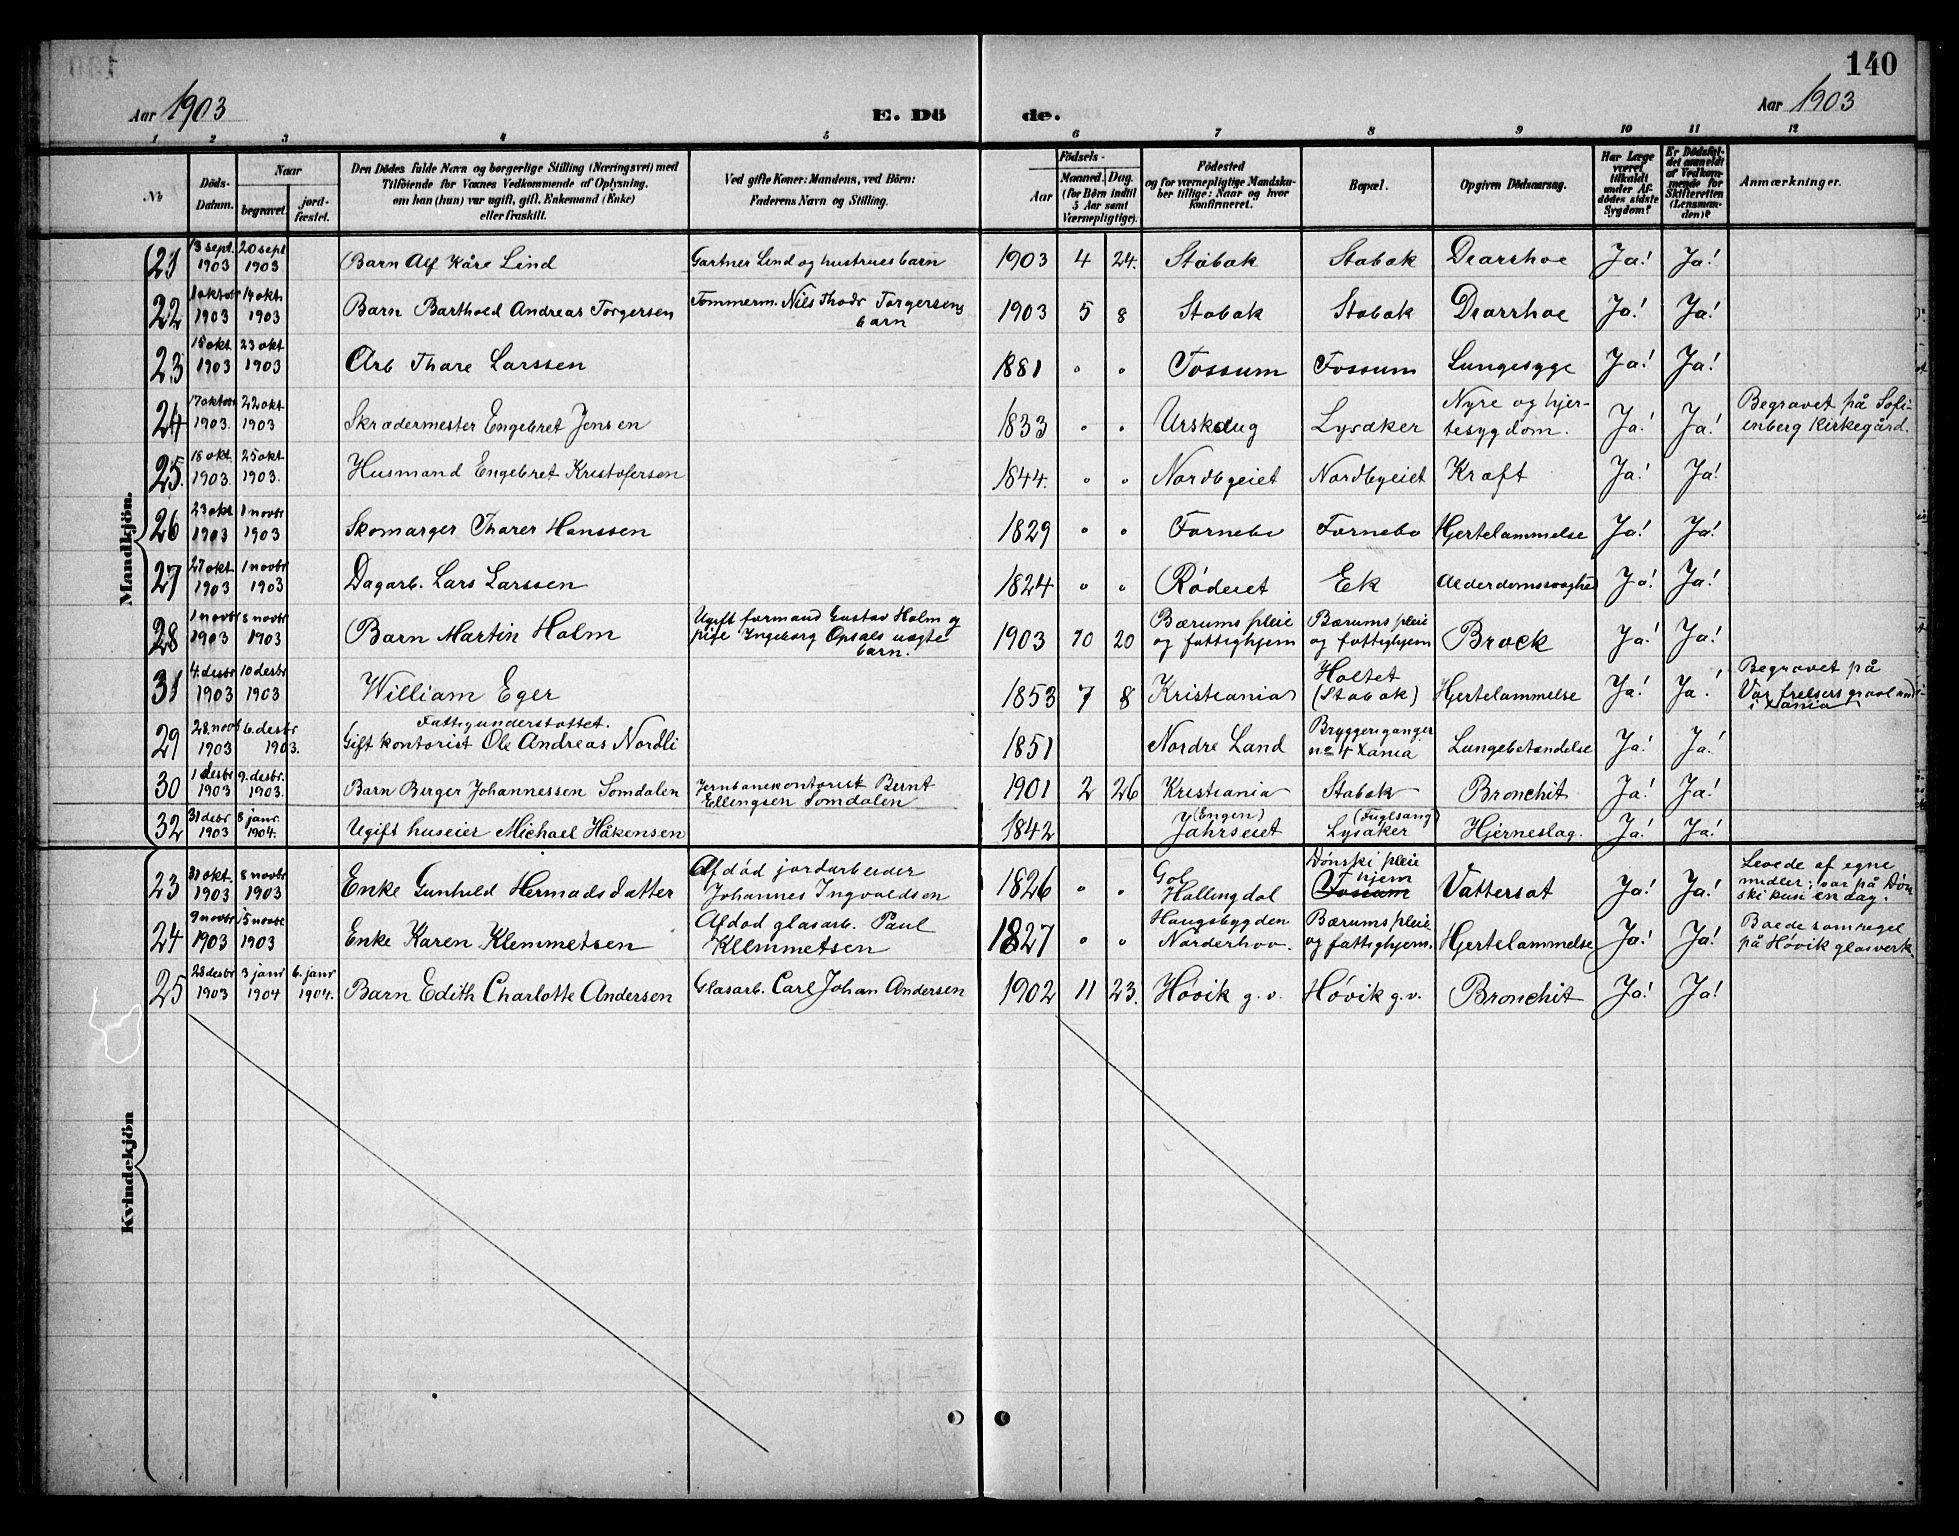 140
Aar 1903 E. Dö de. Aar 1903
1 2 3 4 5 6 7 8 9 10 11 12
No Döds-Datum. Naar begravet. jordfæstet. Den Dödes fulde Navn og borgerlige Stilling (Næringsvei) med Tilföiende for Voxnes Vedkommende af Oplysning, om han (hun) var ugift, gift, Enkemand (Enke) eller fraskilt. Ved gifte Koner: Mandens, ved Börn: Faderens Navn og Stilling. Födsels- Aar Maaned. Dag. (for Börn indtil 5 Aar samt Værnepligtige). Födested og for værnepligtige Mandskaber tillige: Naar og hvor konfirmeret. Bopæl. Opgiven Dödsaarsag. Har Læge været tilkaldt under Afdödes sidste Sygdom? Er Dödsfaldet anmeldt af Vedkommende for Skifteretten (Lensmanden)? Anmærkninger.
Mandkjön.
21 13 sept. 1903 20 sept 1903 Barn Alf Kåre Lind Gartner Lind og hustrues barn 1903 4 24. Stabæk Stabæk Diarrhoe Ja! Ja!
22 1 oktobr 1903 14 okt. 1903 Barn Barthold Andreas Torgersen Tømmerm. Nils Thodr Torgersens barn 1903 5 8 Stabæk Stabæk Diarrhoe Ja! Ja!
23 15 okt 1903 23 okt 1903 Arb Thore Larssen 1881 " " Fossum Fossum Lungesyge Ja! Ja!
24 17 oktobr 1903. 22 okt 1903 Skrædermester Engebret Jensen 1833 " " Urskoug Lysaker Nyre og hjertesygdom. Ja! Ja! Begravet på Sofienberg Kirkegård.
25. 18 okt 1903. 25 okt 1903. Husmand Engebret Kristofersen 1844. " " Nordbyeiet Nordbyeiet Kræft Ja! Ja!
26 23 okt 1903 1 novbr 1903 Skomager Thorer Hanssen 1829 " " Fornebo Fornebo Hjertelammelse Ja! Ja!
27 27 okt 1903 1 novbr 1903 Dagarb. Lars Larssen 1824 " " Rødeiet Ek Alderdomssvaghed Ja! Ja!
28 1 novbr 1903 8 novbr 1903 Barn Martin Holm Ugift formand Gustav Holm og pike Ingeborg Opsals uægte barn. 1903 10 20 Bærums pleie og fattighjem Bærums pleie og fattighjem Brock Ja! Ja!
31 4. desbr 1903 10 desbr 1903 William Eger 1853 7 8 Kristiania Holtet (Stabæk) Hjertelammelse Ja! Ja! Begravet på Vor frelsers gravlund i Xania
29 28. novb 1903 6. desbr 1903. Fattigunderstøttet. Gift kontorist Ole Andreas Nordli 1851 Nordre Land Bryggerigangen no 4 Xania Lungebetændelse Ja! Ja!
30 1 desbr 1903 9. desbr. 1903. Barn Birger Johannessen Somdalen Jernbanekontorist Bernt Ellingsen Somdalen 1901 2 26 Kristiania Stabæk Bronchit Ja! Ja!
32 31 desbr 1903 8 janr 1904. Ugift huseier Michael Håkensen 1842 (Engen) Jahrseiet (Fuglsang) Lysaker Hjerneslag. Ja! Ja!
Kvindekjön
23 31 okt. 1903 8 novbr 1903 Enke Gunhild Hermodsdatter Afdød jordarbeider Johannes Ingvaldsen 1826 " " Gol Hallingdal Dønski pleiehjem Fossum Vattersot Ja! Ja! Levede af egne midler; var på Dønski kun en dag.
24 9 novbr 1903 15 novbr 1903 Enke Karen Klemmetsen Afdød glasarb. Paul Klemmetsen 1827 " " Haugsbygden Norderhov. Bærums pleie og fattighjem. Hjertelammelse Ja! Ja! Boede som regel på Høvik glasverk.
25 28 desbr 1903 3 janr 1904 6. janr 1904. Barn Edith Charlotte Andersen Glasarb. Carl Johan Andersen 1902 11 23. Høvik g. v. Høvik g. v. Bronchit Ja! Ja!